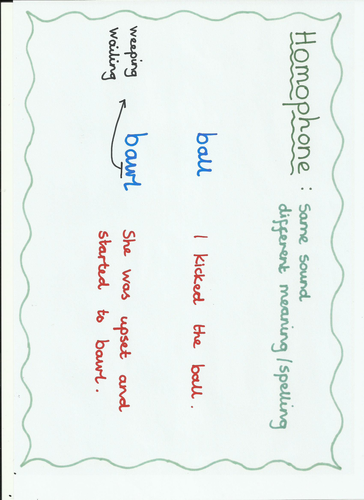 Homophone : same sound
different meaning/spelling
ball I kicked the ball.
bawl She was upset and
started to bawl.
weeping
wailing